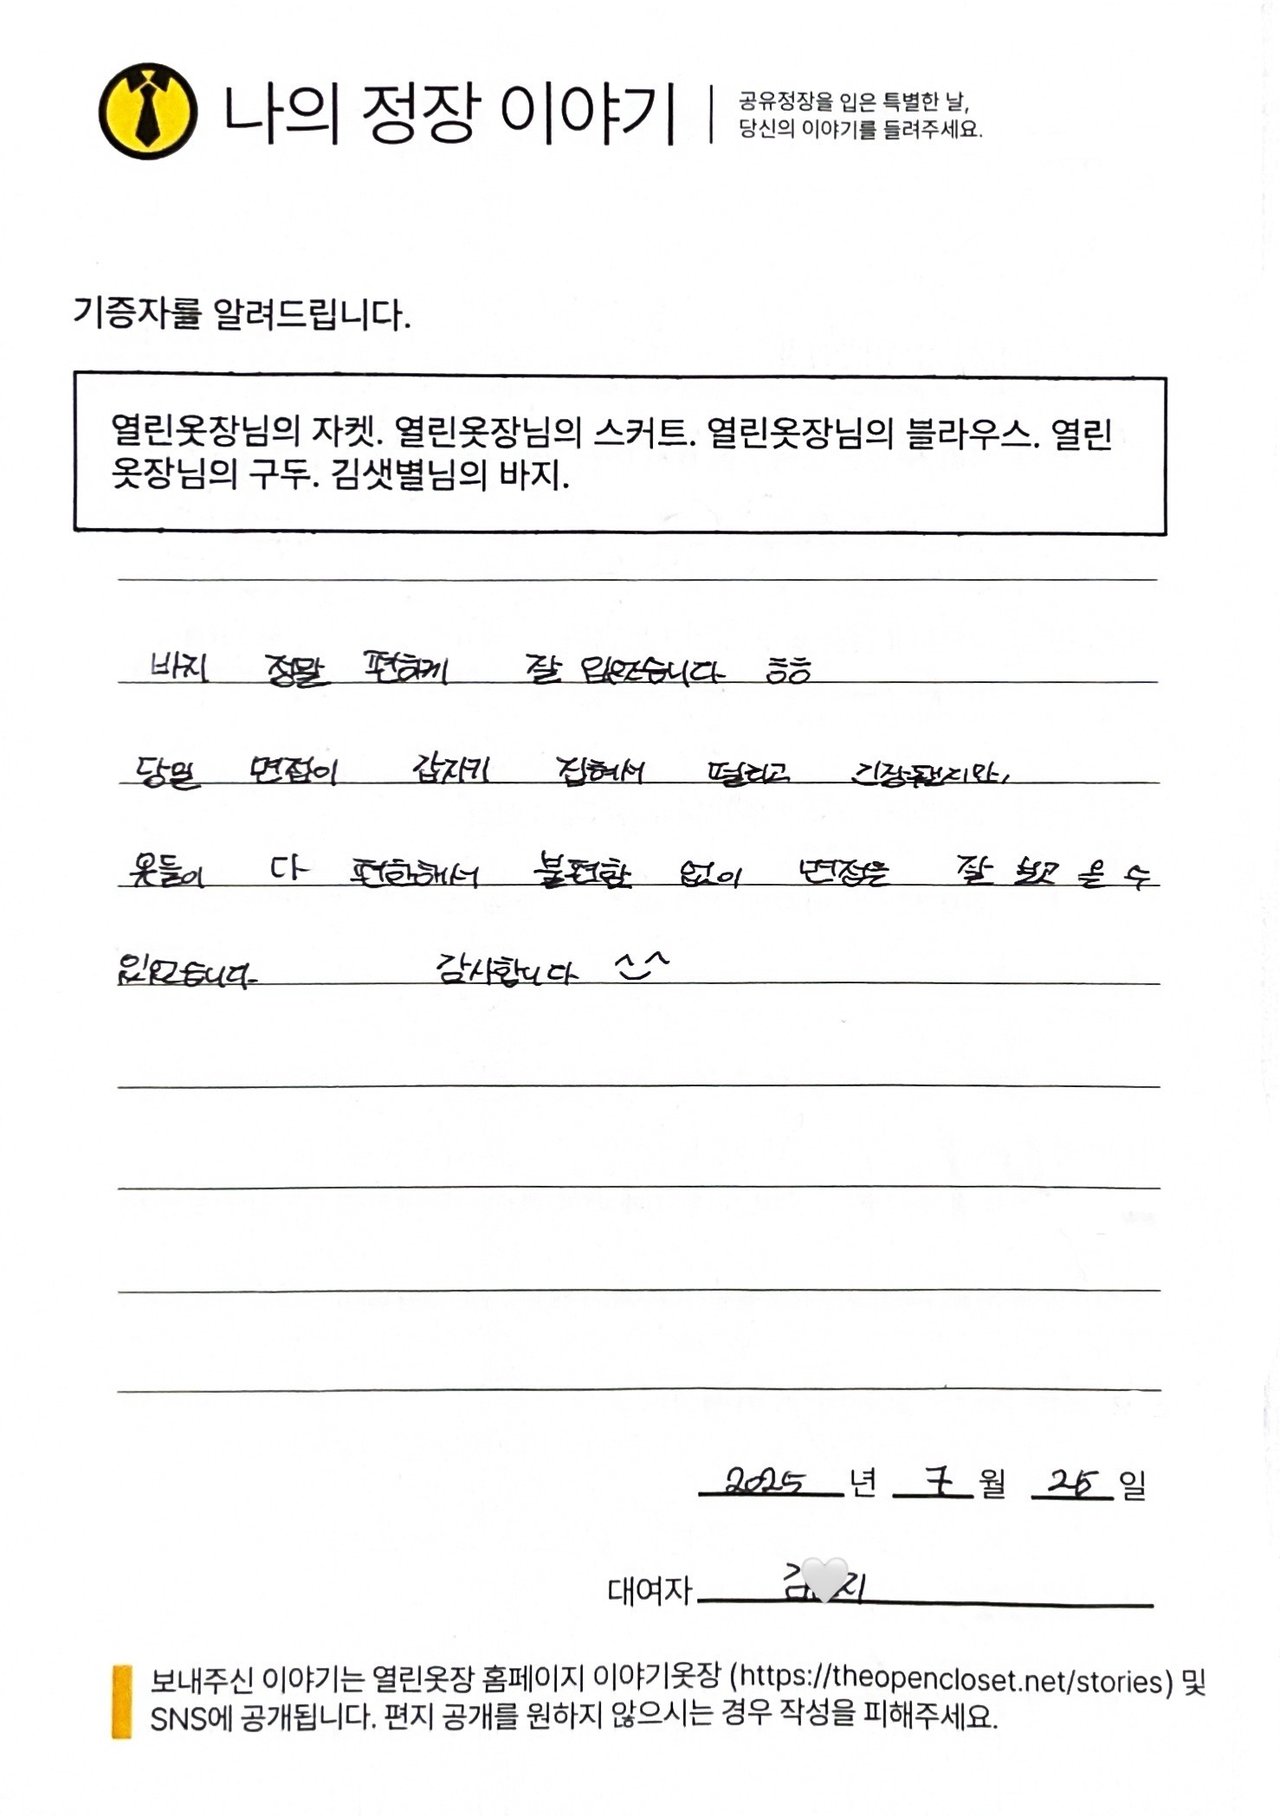 나의 정장 이야기
공유정장을 입은 특별한 날,
당신의 이야기를 들려주세요.
기증자를 알려드립니다.
열린옷장님의 자켓. 열린옷장님의 스커트. 열린옷장님의 블라우스. 열린
옷장님의 구두. 김샛별님의 바지.
바지 정말 편하게 잘 입었습니다 흐흐
당일 면접이 갑자기 잡혀서 떨리고 긴장됐지만,
옷들이 다 편한해서 불편함 없이 면접을 잘 보고 올 수
있었습니다. 감사합니다 ^‿^
2025 년 7 월 25 일
대여자 김🤍지
보내주신 이야기는 열린옷장 홈페이지 이야기옷장 (https://theopencloset.net/stories) 및
SNS에 공개됩니다. 편지 공개를 원하지 않으시는 경우 작성을 피해주세요.